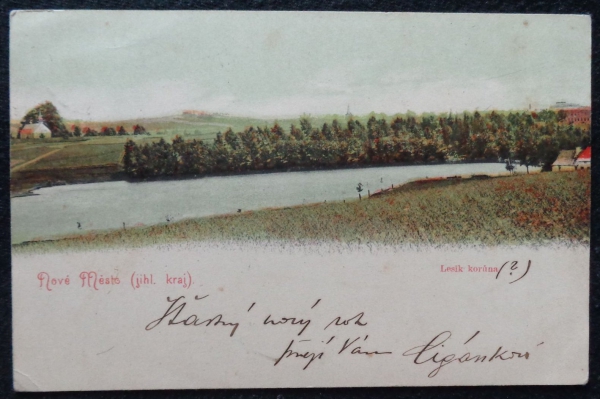 Nové Město (jihl. kraj)
Lesík koróna (?)
Šťastný nový rok
přejí Vám Cigánkovi